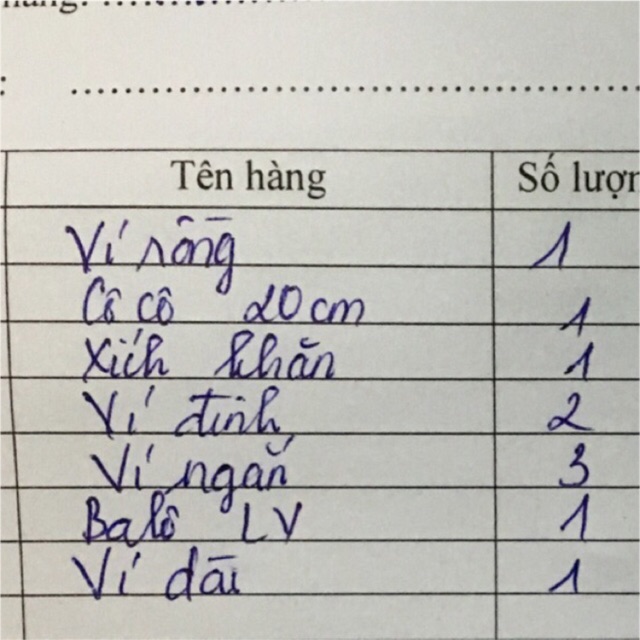 Tên hàng Số lượn
Ví rồng 1
Cô cô 20cm 1
Xích khăn 1
Ví đinh 2
Ví ngắn 3
Balô LV 1
Ví dài 1